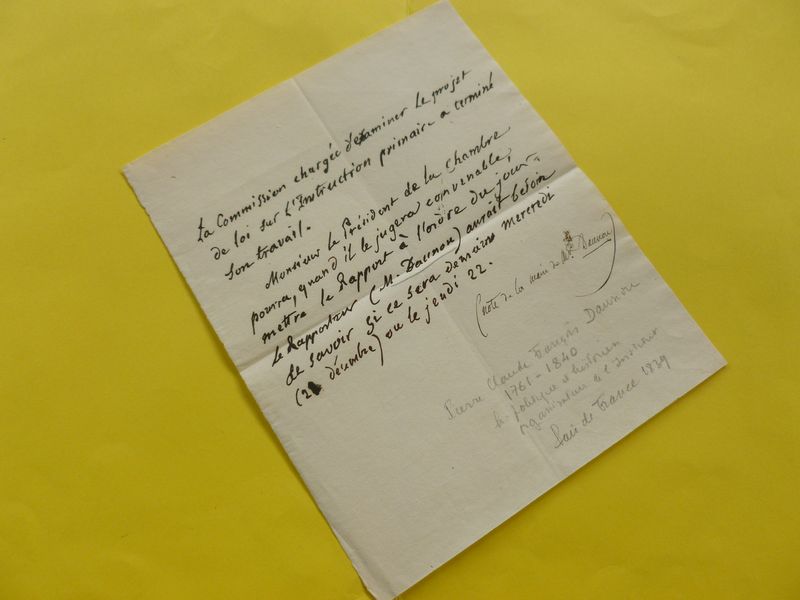 La Commission chargée d'examiner le projet
de loi sur l'Instruction primaire a terminé
son travail.
Monsieur le Président de la chambre
pourra, quand il le jugera convenable,
mettre le Rapport à l'ordre du jour.
Le Rapporteur (M. Daunou) aurait besoin
de savoir si ce sera demain mercredi
(21 décembre) ou le jeudi 22.
(note de la main de Mr. Daunou)
Pierre Claude François Daunou
1761-1840
h. politique et historien
organisateur de l'Institut
Pair de France 1839